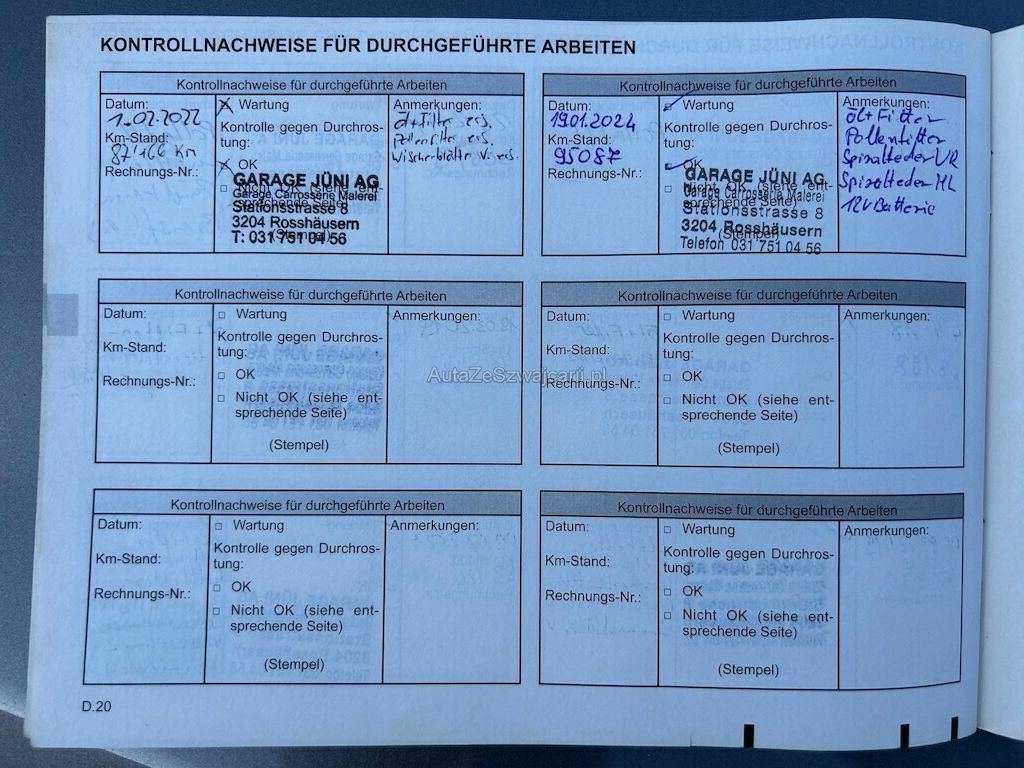 KONTROLLNACHWEISE FÜR DURCHGEFÜHRTE ARBEITEN
Kontrollnachweise für durchgeführte Arbeiten
Datum:
1.02.2022
Km-Stand:
87'166 Km
Rechnungs-Nr.:
Wartung
Kontrolle gegen Durchros-
tung:
OK
Nicht OK (siehe ent-
sprechende Seite)
(Stempel)
GARAGE JÜNI AG
Garage Carrosserie Malerei
Stationsstrasse 8
3204 Rosshäusern
T: 031 751 04 56
Anmerkungen:
öl+Filter ers.
Pollenfilter ers.
Wischerblätter V. ers.
Kontrollnachweise für durchgeführte Arbeiten
Datum:
19.01.2024
Km-Stand:
95087
Rechnungs-Nr.:
Wartung
Kontrolle gegen Durchros-
tung:
OK
Nicht OK (siehe ent-
sprechende Seite)
(Stempel)
GARAGE JÜNI AG
Garage Carrosserie Malerei
Stationsstrasse 8
3204 Rosshäusern
Telefon 031 751 04 56
Anmerkungen:
öl+Filter
Pollenfilter
Spiralfeder VR
Spiralfeder HL
12V Batterie
Kontrollnachweise für durchgeführte Arbeiten
Datum:
Km-Stand:
Rechnungs-Nr.:
Wartung
Kontrolle gegen Durchros-
tung:
OK
Nicht OK (siehe ent-
sprechende Seite)
(Stempel)
Anmerkungen:
Kontrollnachweise für durchgeführte Arbeiten
Datum:
Km-Stand:
Rechnungs-Nr.:
Wartung
Kontrolle gegen Durchros-
tung:
OK
Nicht OK (siehe ent-
sprechende Seite)
(Stempel)
Anmerkungen:
AutaZeSzwajcarii.pl
Kontrollnachweise für durchgeführte Arbeiten
Datum:
Km-Stand:
Rechnungs-Nr.:
Wartung
Kontrolle gegen Durchros-
tung:
OK
Nicht OK (siehe ent-
sprechende Seite)
(Stempel)
Anmerkungen:
Kontrollnachweise für durchgeführte Arbeiten
Datum:
Km-Stand:
Rechnungs-Nr.:
Wartung
Kontrolle gegen Durchros-
tung:
OK
Nicht OK (siehe ent-
sprechende Seite)
(Stempel)
Anmerkungen:
D.20